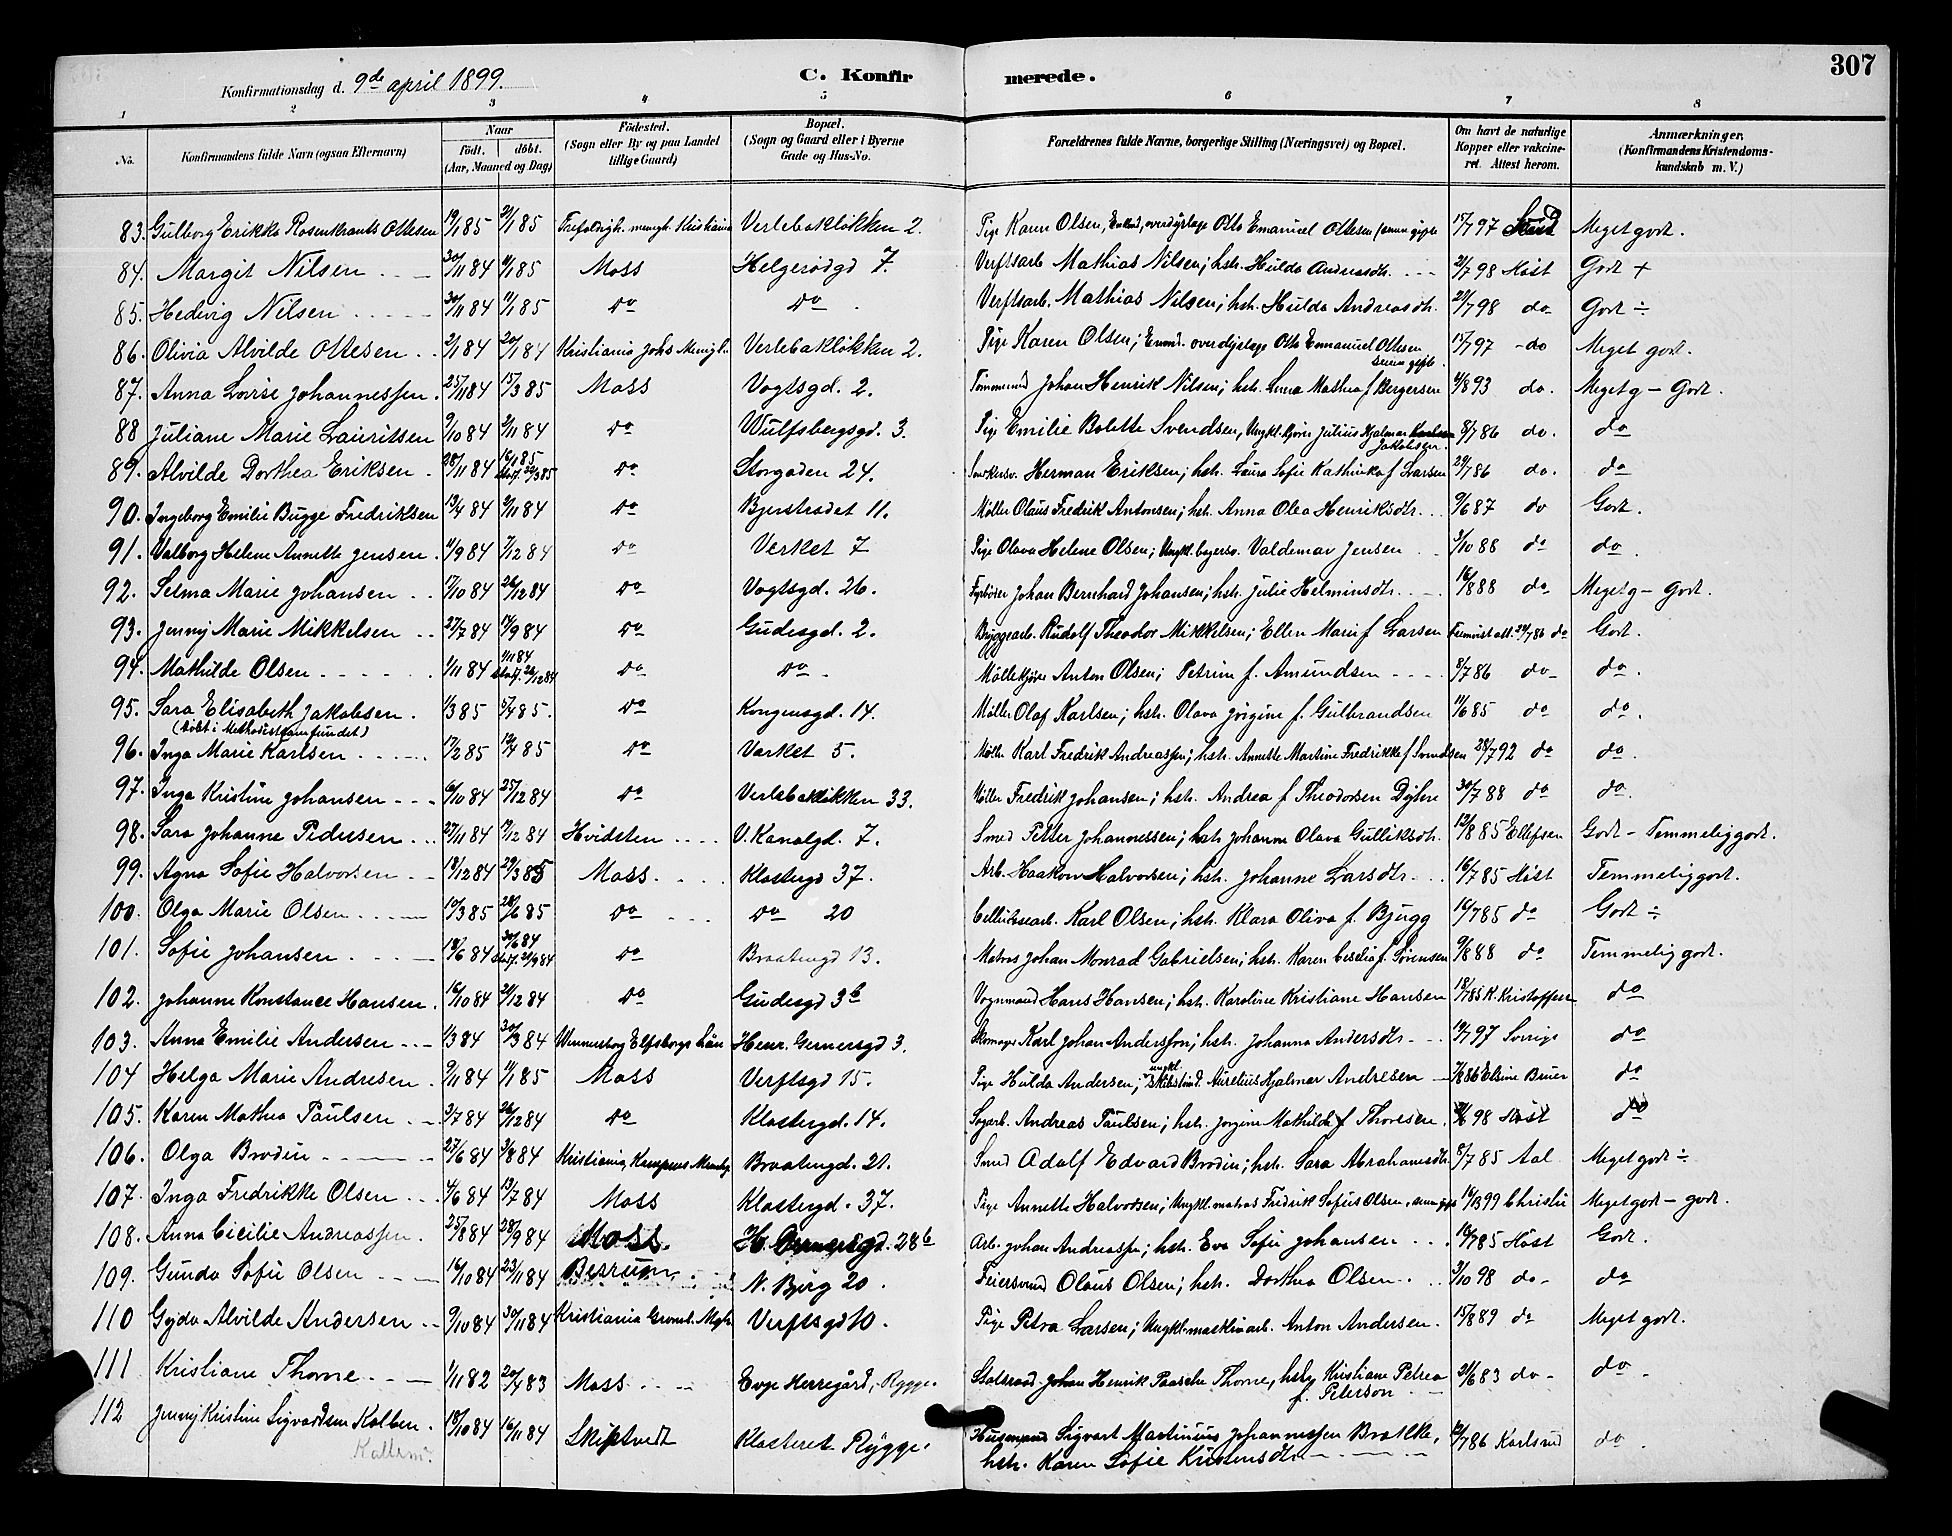 307
Konfirmationsdag d. 9de april 1899.
C. Konfirmerede.
1 2 3 4 5 6 7 8
No.
Konfirmandens fulde Navn (ogsaa Efternavn)
Naar
født. døbt.
(Aar, Maaned og Dag)
Fødested.
(Sogn eller By og paa Landet
tillige Gaard)
Bopæl.
(Sogn og Gaard eller i Byerne
Gade og Hus-No.
Forældrenes fulde Navne, borgerlige Stilling (Næringsvei) og Bopæl.
Om havt de naturlige
Kopper eller vakcine-
ret. Attest herom.
Anmærkninger,
(Konfirmandens Kristendoms-
kundskab m. V.)
83. Gulborg Erikka Rosenkrants Ottesen 19/1 85 21/1 85 Trefoldigh. mengh. Kristiania Verlebakløkken 2. Pige Karen Olsen, overdyrlæge Otto Emanuel Ottesen 15/7 97 Meget godt.
84. Margit Nilsen 30/11 84 11/1 85 Moss Helgerødgd 7. Verftsarb Mathias Nilsen; hst. Hulda Andreasdtr. 21/7 98 Høst Godt +
85. Hedvig Nilsen 30/11 84 11/1 85 do do Verftsarb. Mathias Nilsen; hst. Hulda Andreasdtr. 21/7 98 do Godt ÷
86. Olivia Alvilde Ottesen 2/1 84 20/1 84 Kristiania Johs Mengh. Verlebakløkken 2. Pige Karen Olsen; overdyrlæge Otto Emmanuel Ottesen senere gift. 15/7 97 do Meget godt.
87. Anna Lovise Johannessen. 25/11 84 15/3 85 Moss Vogtsgd. 2. Tømmermd Johan Henrik Nilsen; hst. Lina Mathea f Bergersen 4/8 93 do. Meget g - Godt.
88 Juliane Marie Lauritsen 9/10 84 2/11 84 do Wulfsbergsgd. 3. Pige Emilie Bolette Svendsen, Ungkl. kjører Julius Hjalmar Jakobsen 8/7 86 do. do
89. Alvilde Dorthea Eriksen. 28/11 84 16/1 85 do Storgaden 24. Herman Eriksen; hst. Laura Sofie Kathinka f Larsen 29/7 86 do. do
90. Ingeborg Emilie Bugge Fredriksen 13/4 84 2/11 84 do Bjerstrædet 11. Møller Olaus Fredrik Antonsen; hst. Anna Olea Henriksdtr. 9/6 87 do Godt.
91. Valborg Helene Annette Jensen. 11/9 84 7/12 84 do Verket 7 Pige Olava Helene Olsen; Ungkl. bagersv. Valdemar Jensen 3/10 88 do do.
92. Selma Marie Johansen 17/10 84 26/12 84 do Vogtsgd. 26. Fyrbøder Johan Bernhard Johansen; hst. Julie Helminsdtr. 16/8 88 do Meget g - Godt.
93. Jenny Marie Mikkelsen 27/7 84 14/9 84 do Gudesgd. 2. Bryggearb. Rudolf Theodor Mikkelsen; Ellen Marie f Larsen 24/7 86 do Godt.
94. Mathilde Olsen 1/11 84 26/12 84 do do Møllekjører Anton Olsen; Petrine f. Amundsen 8/7 86 do do.
95. Sara Elisabeth Jakobsen. 1/3 85 5/4 85. do Kongensgd. 14. Møller Olaf Karlsen; hst. Olava Jørgine f. Gulbrandsen 11/6 85 do do.
(døbt i Methodistsamfundet)
96. Inga Marie Karlsen 17/2 85 12/4 85 do Værket 5. Møller Karl Fredrik Andreassen; hst. Annette Martine Fredrikke f Svendsen 28/7 92 do do.
97. Inga Kristine Johansen 6/10 84 25/12 84 do Verlebakløkken 33. Møller Fredrik Johansen; hst. Andrea f Theodorsen Dyhre 30/7 88 do do.
98. Sara Johanne Pedersen 27/11 84 19/12 84 Hvidsten V. Kanalgd. 7. Smed Petter Johannessen; hst. Johanne Olava Gulliksdtr. 12/8 85 Ellefsen Godt - Temmelig godt.
99. Agna Sofie Halvorsen 18/12 84 29/3 85 Moss. Klostergd 37. Arb. Haakon Halvorsen; hst. Johanne Larsdtr. 16/7 85 Høst Temmelig godt.
100. Olga Marie Olsen 10/3 85 28/6 85 do do 20 Cellulosearb. Karl Olsen; hst. Klara Oliva f. Bjugg 16/7 85 do Godt ÷
101. Sofie Johansen 18/6 84 30/6 84 do Braatengd 13. Matros Johan Monrad Gabrielsen; hst. Karen Cecilia f. Sørensen 9/8 88 do Temmelig godt.
102. Johanne Konstance Hansen. 16/10 84 21/12 84 do Gudesgd 3b Vognmand Hans Hansen; hst. Karoline Kristiane Hansen 18/7 85 K. Kristoffersen do
103. Anna Emilie Andersen 1/3 84 30/3 84 Wennersborg Elfsborgs Län Henr. Gernersgd 3. Skomager Karl Johan Andersson; hst. Johanna Andersdtr. 19/7 97 Sverige do
104 Helga Marie Andresen. 9/11 84 11/1 85 Moss Verftsgd 15. Pige Hulda Andersen; ungkl. Aurelius Hjalmar Andresen 7/8 86 Elsine Bruer do
105. Karen Mathea Paulsen. 2/7 84 26/12 84 do Klostergd. 14. Sagarb. Andreas Paulsen; hst. Jørgine Mathilde f Thoresen. 98 Høst do
106. Olga Brodin 27/6 84 3/8 84 Kristiania, Kampens Mengh. Braatengd. 21. Smed Adolf Edvard Brodin; hst. Sara Abrahamsdtr. 8/7 85 Aal Meget godt ÷
107. Inga Fredrikke Olsen 4/6 84 13/7 84 Moss Klostergd. 37. Pige Annette Halvorsen; Ungkl. matros Fredrik Sofius Olsen, 99 Christie Meget godt - godt.
108. Anna Cicilie Andreassen. 25/8 84 28/9 84 Moss. H. Gernersgd. 28b Arb. Johan Andreassen; hst. Eva Sofie Johansen 10/7 85 Høst Godt.
109. Gunda Sofie Olsen 16/10 84 23/11 84 Besrum. N. Bjerg 20. Feiersvend Olaus Olsen; hst. Dorthea Olsen 3/10 98 do do
110 Gyda Alvilde Andersen 9/10 84 30/11 84 Kristiania Grønl. Mgh. Verftsgd 10. Pige Petra Larsen; Ungkl. maskinarb. Anton Andersen. 15/8 89 do Meget godt.
111 Kristiane Thorne 1/11 82 20/4 83 Moss Evje Herregård, Rygge. Statsraad Johan Henrik Paasche Thorne, hst. Kristiane Petrea f. Peterson 21/6 83 do do.
112 Jenny Kristine Sigvardsen Kolben. 18/10 84 16/11 84 Skiptvedt Klosteret Rygge. Husmand Sigvart Martinius Johannessen Bratlke, 12/7 86 Karlsrud do.
hst. Karen Sofie Kristensdtr